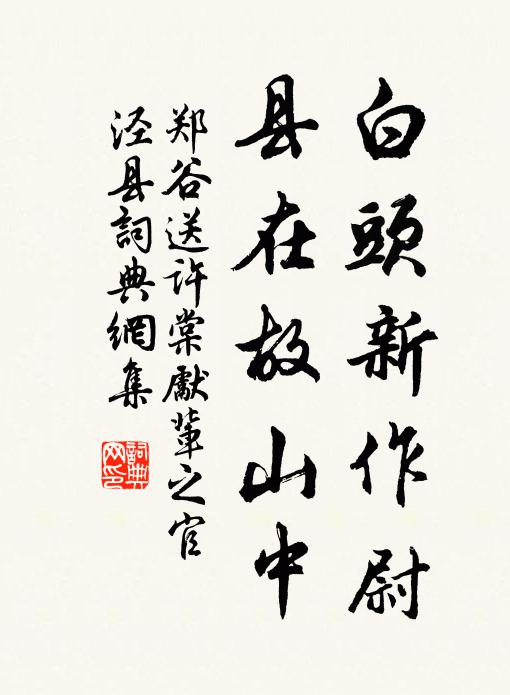 白頭新作尉
县在故山中
郑谷送许棠獻軰之官
泾县詞典網集
詞典
网印